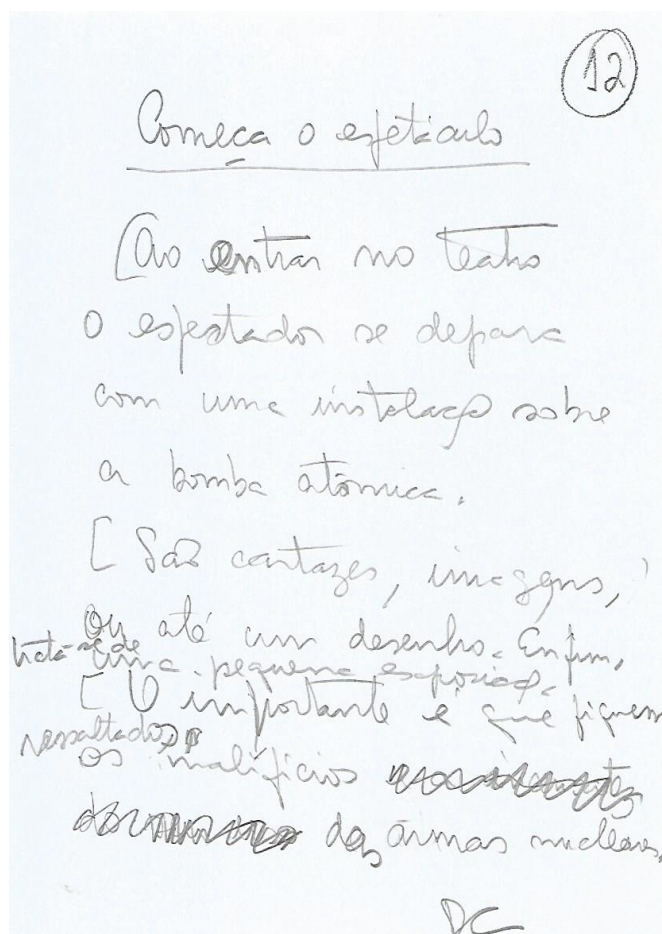 12
Começa o espetáculo
[Ao entrar no teatro
o espectador se depara
com uma instalação sobre
a bomba atômica.
[São cartazes, imagens,
ou até um desenho. Enfim,
trata-se de uma pequena exposição.
[O importante é que fiquem
ressaltados
os malifícios
das armas nucleares.